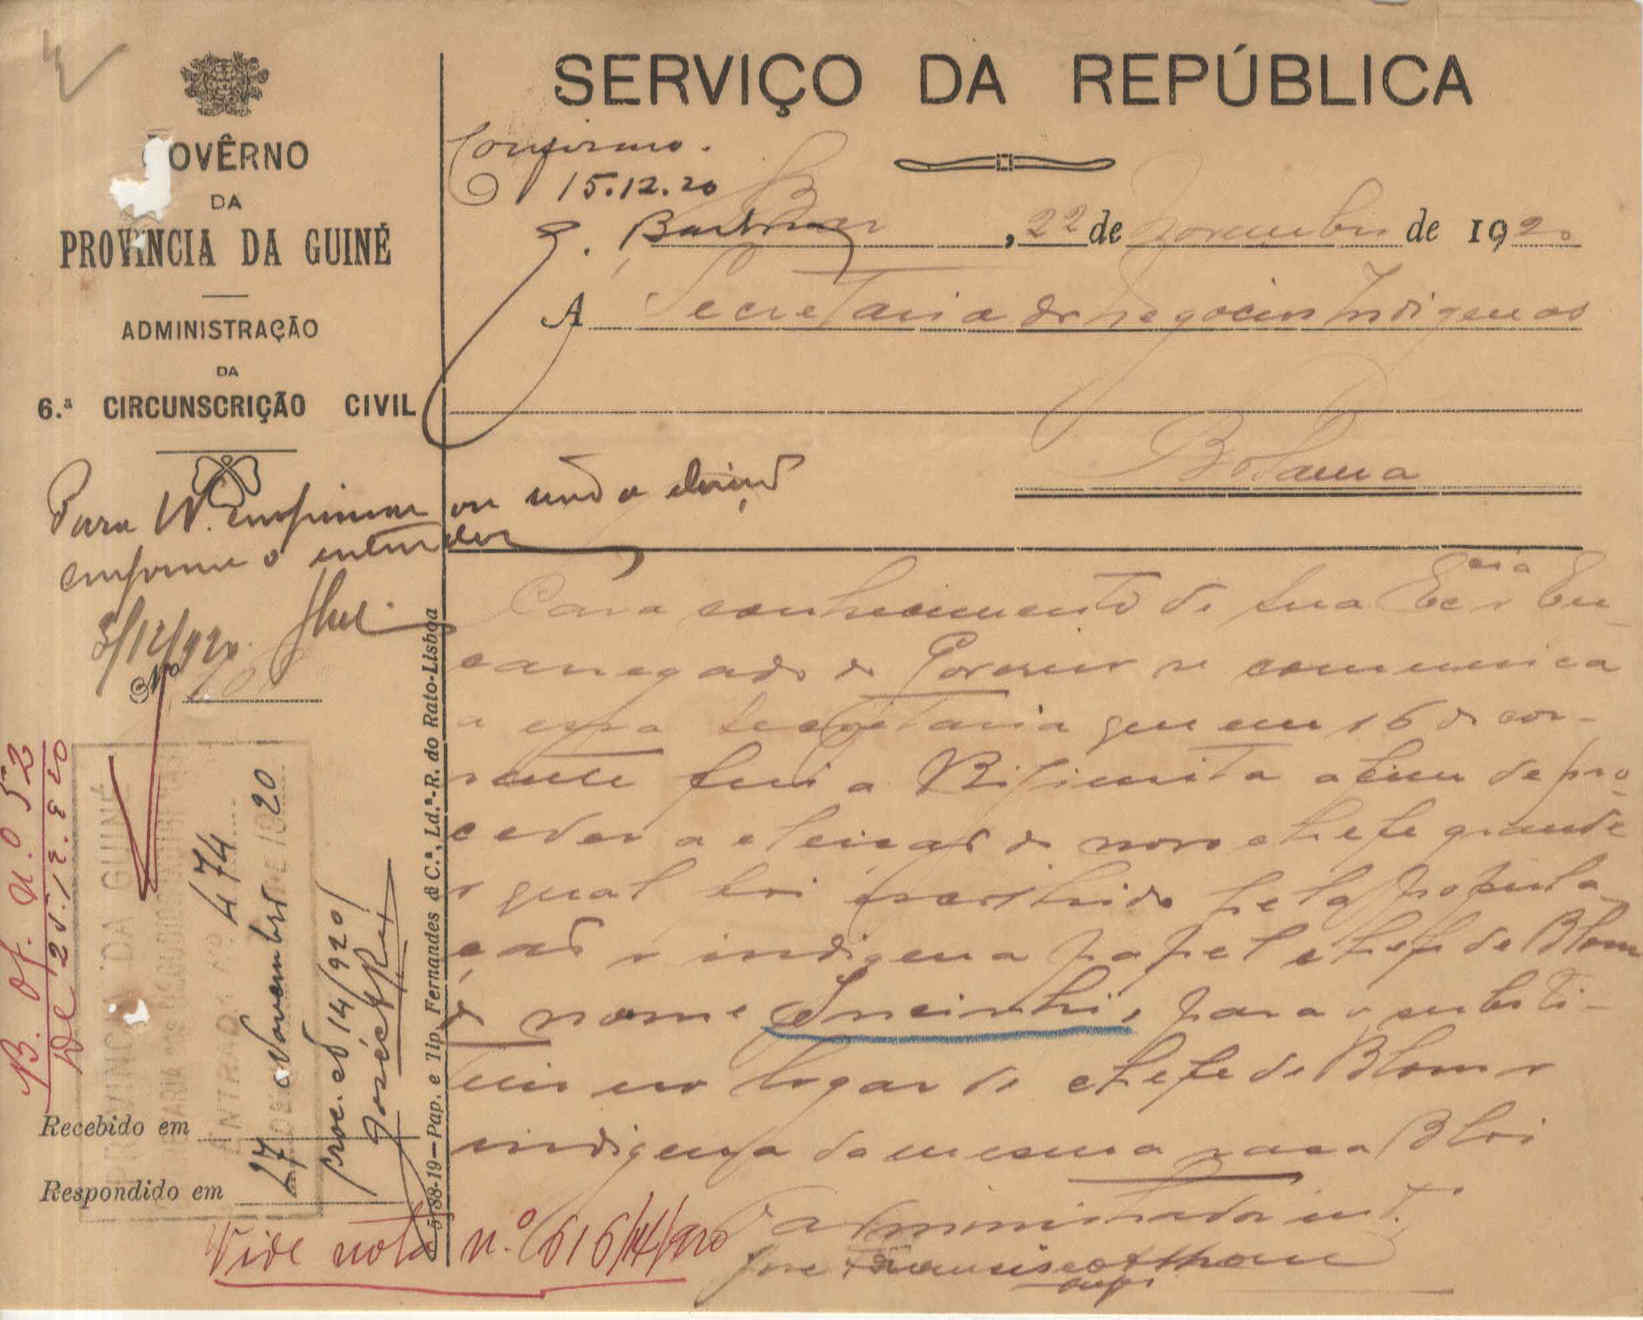 SERVIÇO DA REPÚBLICA
GOVÊRNO
DA
PROVÍNCIA DA GUINÉ
ADMINISTRAÇÃO
DA
6.ª CIRCUNSCRIÇÃO CIVIL
Confirmo.
15.12.20
, 22 de Novembro de 1920
A Secretaria dos Negocios Indigenas
Bolama
Para W. confirmar ou não a eleição
conforme o entender
3/12/920.
Nº
Para conhecimento de Sua Exª o En-
carregado do Governo se communica
a essa Secretaria que em 16 do cor-
rente fui a Bijimita afim de pro-
ceder a eleição do novo chefe grande
o qual foi escolhido pela popula-
ção o indigena papel chefe de Blom
de nome Incinhi, para o substi-
tuir no logar de chefe de Blom o
indigena da mesma raça Bloi
O administrador intº
José Francisco
B. Of. n.º 52
De 25.12.920
PROVINCIA DA GUINÉ
ENTRADA Nº 474
27 de Novembro DE 1920
proc. 14/920
José
Recebido em
Respondido em
5:188-19—Pap. e Tip. Fernandes & C.ª, Ld.ª-R. do Rato-Lisboa
Vide nota n.º 616/14/920